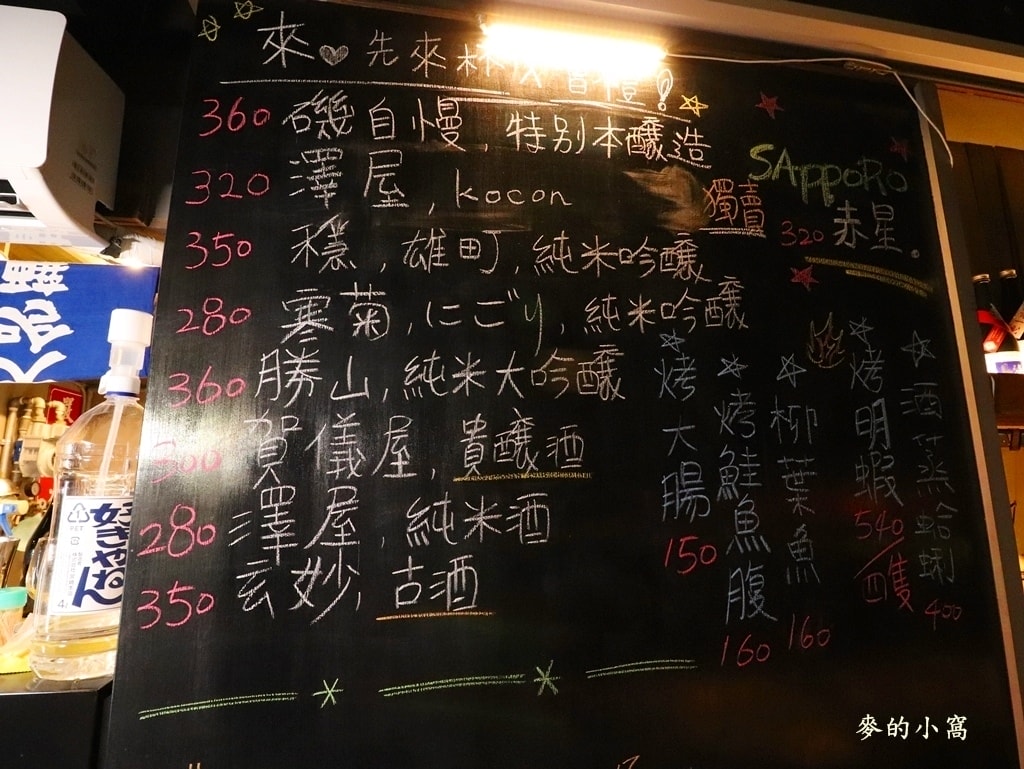 來♡先來杯
360 磯自慢,特別本釀造
320 澤屋,kocon
350 穩,雄町,純米吟釀
280 寒菊,にごり,純米吟釀
360 勝山,純米大吟釀
300 賀儀屋,貴釀酒
280 澤屋,純米酒
350 玄妙,古酒
SAppoRo
獨賣
320 赤星。
烤大腸
150
烤鮭魚腹
160
柳葉魚
160
烤明蝦
540/四隻
酒蒸蛤蜊
400
好きやねん
4ℓ
PET
麥的小窩